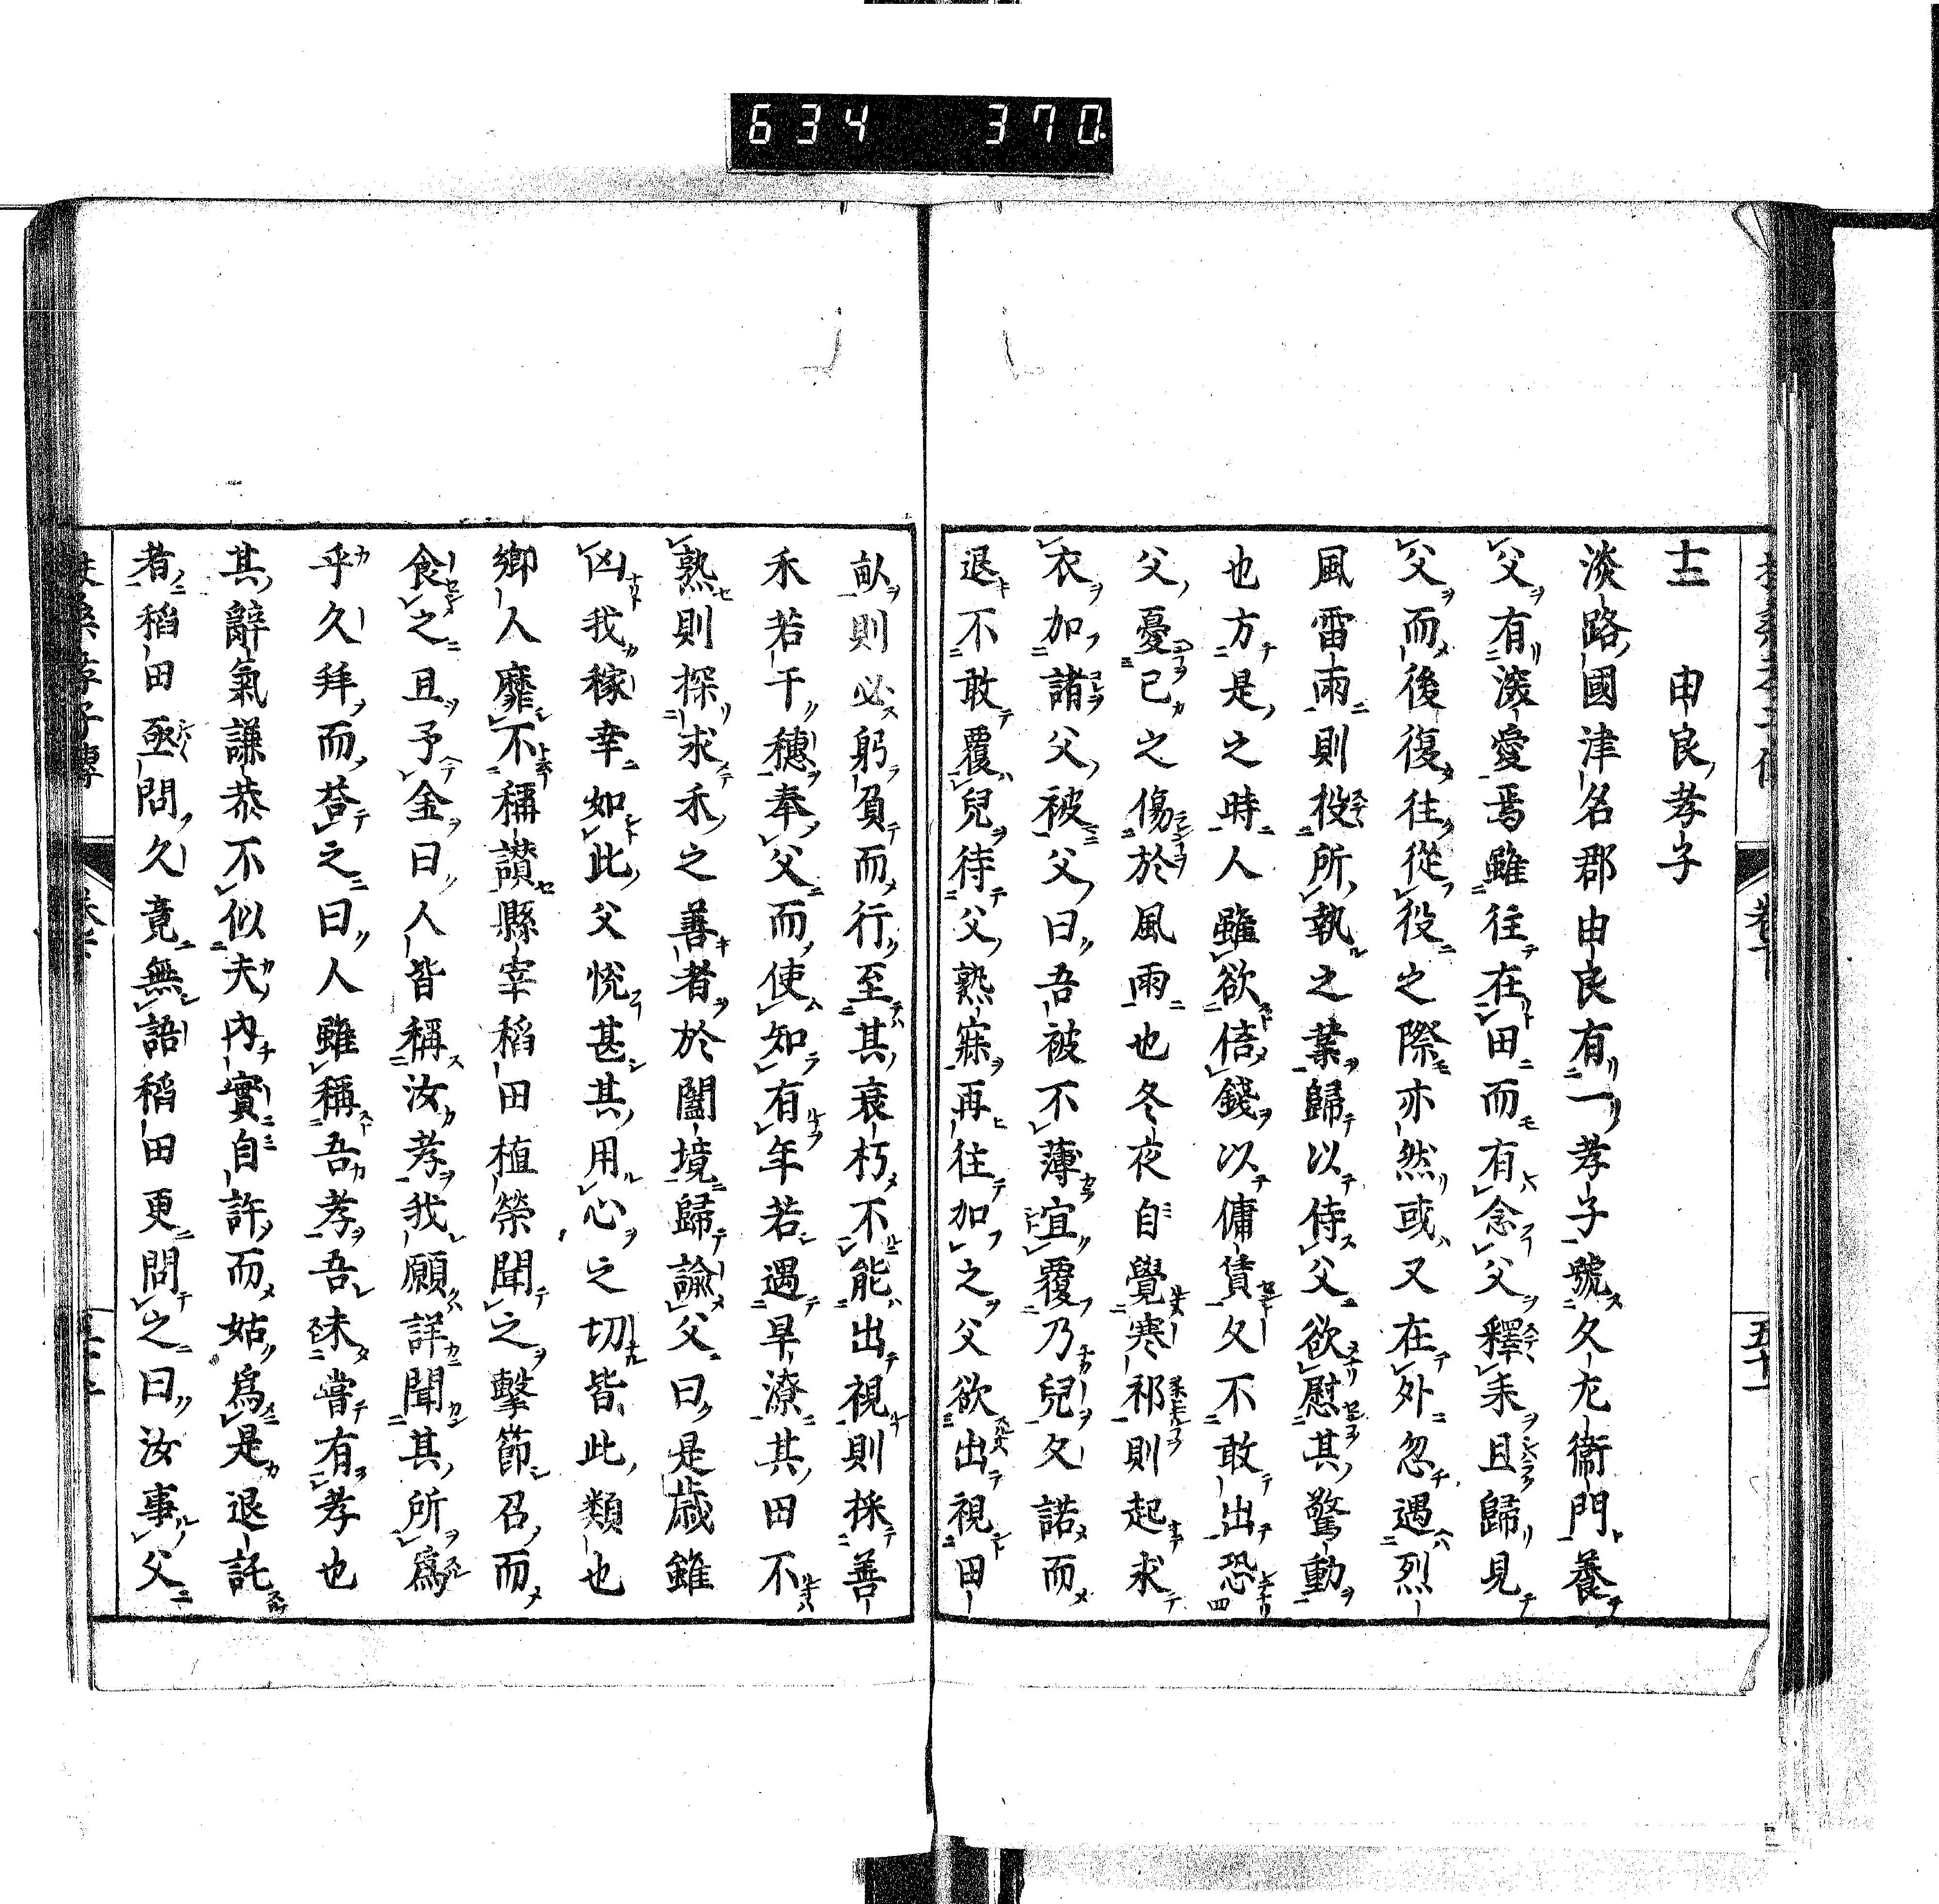 634 370
十二 由良孝子
淡路國津名郡由良有一孝子號久左衞門養
父有深愛焉雖往在田而有念父釋耒且歸見
父而後復往從役之際亦然或又在外忽遇烈
風雷雨則投所執之業歸以侍父欲慰其驚動
也方是之時人雖欲倍錢以傭賃久不敢出恐
父憂己之傷於風雨也冬夜自覺寒祁則起求
衣加諸父被父曰吾被不薄宜覆乃兒久諾而
退不敢覆兒待父熟寐再往加之父欲出視田
畝則必躬負而行至其衰朽不能出視則採善
禾若干穗奉父而使知有年若遇旱潦其田不
熟則探求禾之善者於闔境歸諭父曰是歳雖
凶我稼幸如此父悦甚其用心之切皆此類也
鄉人靡不稱讃縣宰稻田植榮聞之擊節召而
食之且予金曰人皆稱汝孝我願詳聞其所爲
乎久拜而荅之曰人雖稱吾孝吾未嘗有孝也
其辭氣謙恭不似夫内實自許而姑爲是退託
者稻田亟問久竟無語稻田更問之曰汝事父
五十一